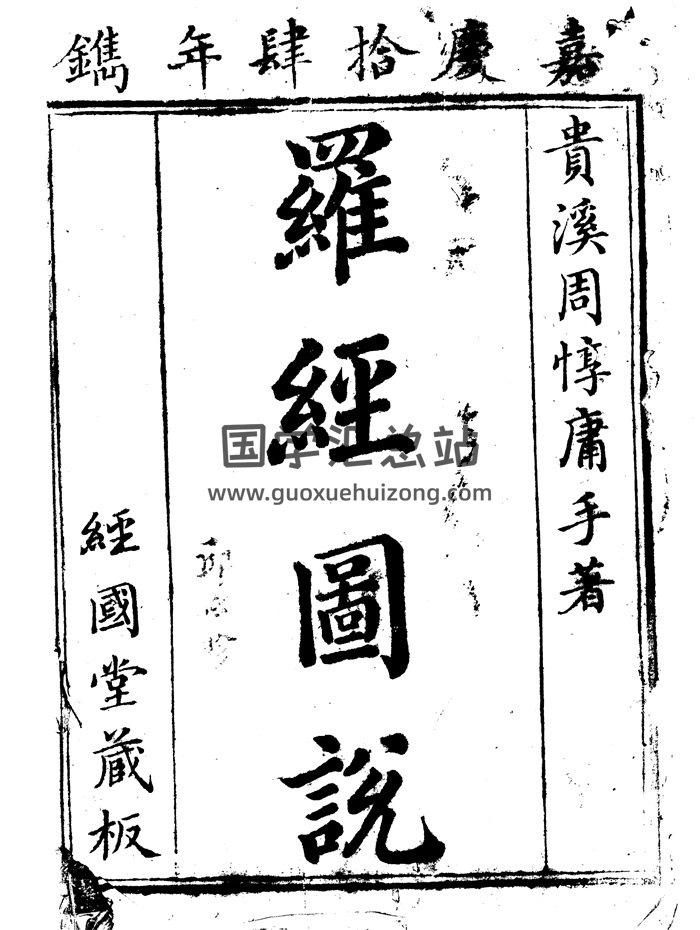 嘉慶拾肆年鐫
貴溪周惇庸手著
羅經圖說
經國堂藏板
国学汇总站
www.guoxuehuizong.com